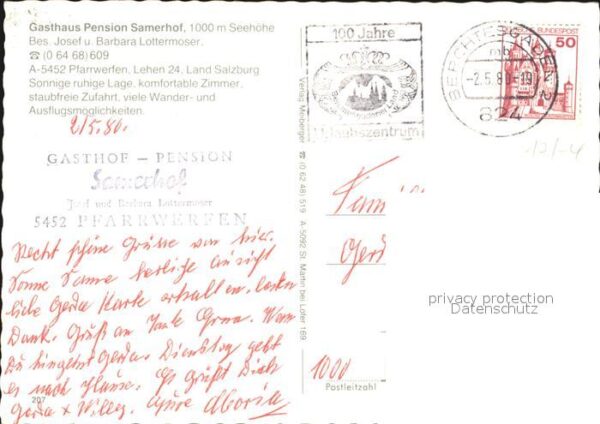 Gasthaus Pension Samerhof, 1000 m Seehöhe
Bes. Josef u. Barbara Lottermoser.
☎ (0 64 68) 609
A-5452 Pfarrwerfen, Lehen 24, Land Salzburg
Sonnige ruhige Lage, komfortable Zimmer,
staubfreie Zufahrt, viele Wander- und
Ausflugsmöglichkeiten.
2/5.80.
GASTHOF – PENSION
Samerhof
Josef und Barbara Lottermoser
5452 PFARRWERFEN
Recht schöne Grüße von hier.
Sonne Sonne herrliche Aussicht
liebe Gerda Karte erhalten,
Dank. Gruß an Tante Erna. Wenn
Du hingehst Gerda. Dienstag geht
es nach Hause. Es grüßt Dich
Gerda + Willy.
207
Verlag Weiberger ☎ (0 62 48) 519 A-5092 St. Martin bei Lofer 169
100 Jahre
Urlaubszentrum
BERCHTESGADEN 2
mb
-2.5.80-19
824
DEUTSCHE BUNDESPOST
50
12/-4
Fam
Gerd
privacy protection
Datenschutz
1000
Postleitzahl